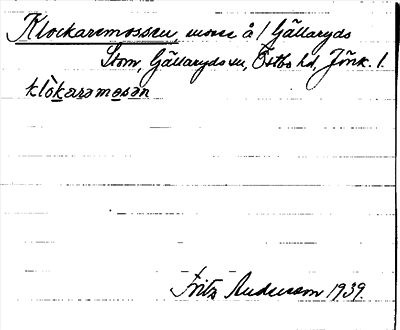 Klockaremossen, mosse å 1 Gällaryds
Stom, Gällaryds sn, Östbo hd, Jönk. l.
klòkarəmosən
Fritz Andersson 1939.